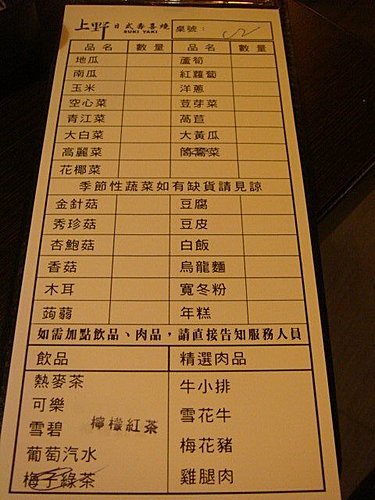 上野 日式壽喜燒 桌號：
SUKI YAKI
品名 數量 品名 數量
地瓜 蘆筍
南瓜 紅蘿蔔
玉米 洋蔥
空心菜 荳芽菜
青江菜 萵苣
大白菜 大黃瓜
高麗菜 茼蒿菜
花椰菜
季節性蔬菜如有缺貨請見諒
金針菇 豆腐
秀珍菇 豆皮
杏鮑菇 白飯
香菇 烏龍麵
木耳 寬冬粉
蒟蒻 年糕
如需加點飲品、肉品，請直接告知服務人員
飲品 精選肉品
熱麥茶 牛小排
可樂 雪花牛
雪碧 檸檬紅茶 梅花豬
葡萄汽水 雞腿肉
梅子綠茶